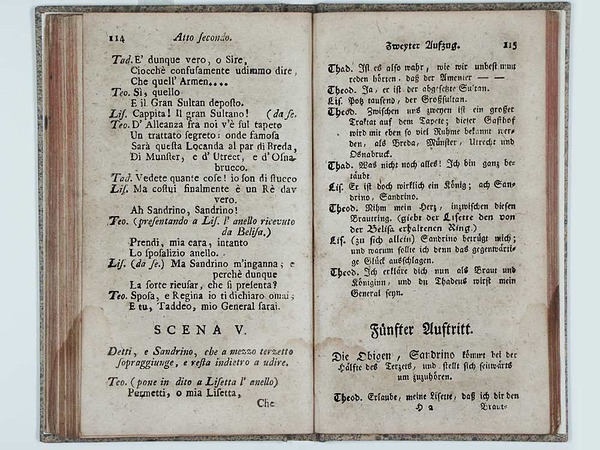 114 Atto secondo.
Tad. E' dunque vero, o Sire,
Ciocchè confusamente udimmo dire,
Che quell' Armen....
Teo. Sì, quello
E il Gran Sultan deposto.
Lis. Cappita! il gran Sultano! (da se.
Teo. D' Alleanza fra noi v'è sul tapeto
Un trattato segreto: onde famosa
Sarà questa Locanda al par di Breda,
Di Munster, e d' Utrect, e d' Osna
brucco.
Tad. Vedete quante cose! io son di stucco
Lis. Ma costui finalmente è un Rè dav
vero.
Ah Sandrino, Sandrino!
Teo. (presentando a Lis. l' anello ricevuto
da Belisa.)
Prendi, mia cara, intanto
Lo sposalizio anello.
Lis. (da se.) Ma Sandrino m'inganna; e
perchè dunque
La sorte rieusar, che si presenta?
Teo. Sposa, e Regina io ti dichiaro omai;
E tu, Taddeo, mio General sarai.
SCENA V.
Detti, e Sandrino, che a mezzo terzetto
sopraggiunge, e resta indietro a udire.
Teo. (pone in dito a Lisetta l' anello)
Permetti, o mia Lisetta,
Che
Zweyter Aufzug. 115
Thad. Ist es also wahr, wie wir unbestimmt
reden hörten, daß der Armenier — —
Theod. Ja, er ist der abgesetzte Sultan.
Lis. Potz tausend, der Großsultan.
Theod. Zwischen uns zweyen ist ein großer
Traktat auf dem Tapete; dieser Gasthof
wird mit eben so viel Ruhme bekannt wer-
den, als Breda, Münster, Utrecht und
Osnabruck.
Thad. Was nicht noch alles! Ich bin ganz be-
täubt.
Lis. Er ist doch wirklich ein König; ach San-
drino, Sandrino.
Theod. Nihm mein Herz, inzwischen diesen
Brautring. (giebt der Lisette den von
der Belisa erhaltenen Ring.)
Lis. (zu sich allein) Sandrino betrügt mich;
und warum sollte ich denn das gegenwärti-
ge Glück ausschlagen.
Theod. Ich erkläre dich nun als Braut und
Königinn, und du Thadeus wirst mein
General seyn.
Fünfter Auftritt.
Die Obigen, Sandrino kömmt bei der
Hälfte des Terzets, und stellt sich seitwärts
um zuzuhören.
Theod. Erlaube, meine Lisette, daß ich dir den
H 2 Braut-